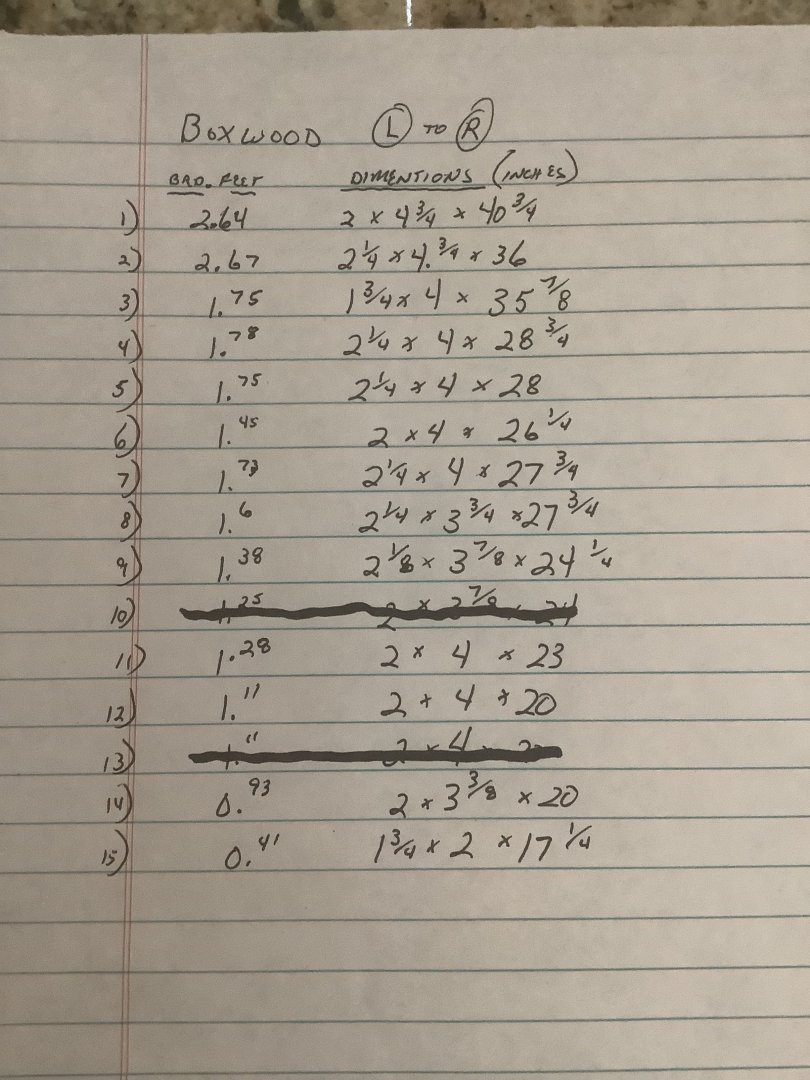 BOXWOOD L TO R
BRD. FEET DIMENTIONS (INCHES)
1) 2.64 2 x 4 3/4 x 40 3/4
2) 2.67 2 1/4 x 4. 3/4 x 36
3) 1.75 1 3/4 x 4 x 35 7/8
4) 1.78 2 1/4 x 4 x 28 3/4
5) 1.75 2 1/4 x 4 x 28
6) 1.45 2 x 4 x 26 1/4
7) 1.73 2 1/4 x 4 x 27 3/4
8) 1.6 2 1/4 x 3 3/4 x 27 3/4
9) 1.38 2 1/8 x 3 7/8 x 24 1/4
10) 1.25 2 x 3 7/8 x 24
11) 1.28 2 x 4 x 23
12) 1.11 2 x 4 x 20
13) 1.11 2 x 4 x
14) 0.93 2 x 3 3/8 x 20
15) 0.41 1 3/4 x 2 x 17 1/4